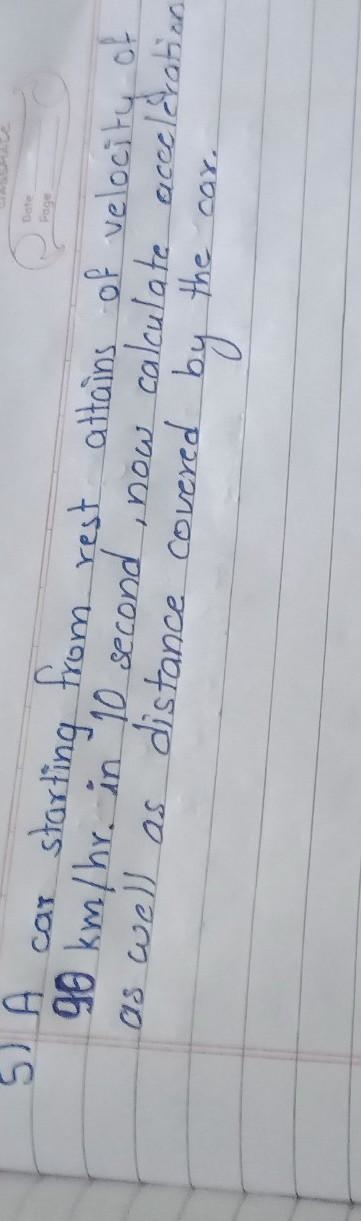 CLASSMATE
Date
Page
5) A car starting from rest attains of velocity of
90 km/hr. in 10 second, now calculate acceleration
as well as distance covered by the car.